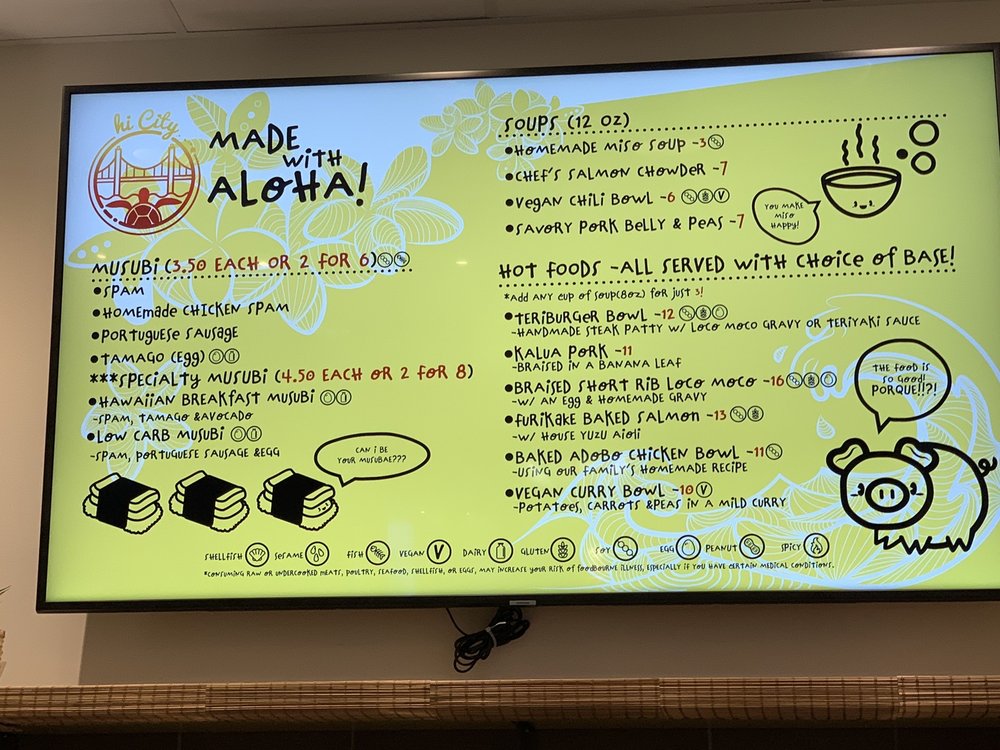 hi City
MADE
WITH
ALOHA!
MUSUBI (3.50 EACH OR 2 FOR 6)
•SPAM
•HOMEMADE CHICKEN SPAM
•PORTUGUESE SAUSAGE
•TAMAGO (EGG)
***SPECIALTY MUSUBI (4.50 EACH OR 2 FOR 8)
•HAWAIIAN BREAKFAST MUSUBI
-SPAM, TAMAGO &AVOCADO
•LOW CARB MUSUBI
-SPAM, PORTUGUESE SAUSAGE &EGG
CAN I BE
YOUR MUSUBAE???
SOUPS (12 OZ)
•HOMEMADE MISO SOUP -3
•CHEF'S SALMON CHOWDER -7
•VEGAN CHILI BOWL -6 V
•SAVORY PORK BELLY & PEAS -7
YOU MAKE
MISO
HAPPY!
HOT FOODS -ALL SERVED WITH CHOICE OF BASE!
*ADD ANY CUP OF SOUP(8OZ) FOR JUST 3!
•TERIBURGER BOWL -12
-HANDMADE STEAK PATTY W/ LOCO MOCO GRAVY OR TERIYAKI SAUCE
•KALUA PORK -11
-BRAISED IN A BANANA LEAF
•BRAISED SHORT RIB LOCO MOCO -16
-W/ AN EGG & HOMEMADE GRAVY
•FURIKAKE BAKED SALMON -13
-W/ HOUSE YUZU AIOLI
•BAKED ADOBO CHICKEN BOWL -11
-USING OUR FAMILY'S HOMEMADE RECIPE
•VEGAN CURRY BOWL -10 V
-POTATOES, CARROTS &PEAS IN A MILD CURRY
THE FOOD IS
SO GOOD!
PORQUE!!?!
SHELLFISH SESAME FISH VEGAN V DAIRY GLUTEN SOY EGG PEANUT SPICY
*CONSUMING RAW OR UNDERCOOKED MEATS, POULTRY, SEAFOOD, SHELLFISH, OR EGGS, MAY INCREASE YOUR RISK OF FOODBOURNE ILLNESS, ESPECIALLY IF YOU HAVE CERTAIN MEDICAL CONDITIONS.